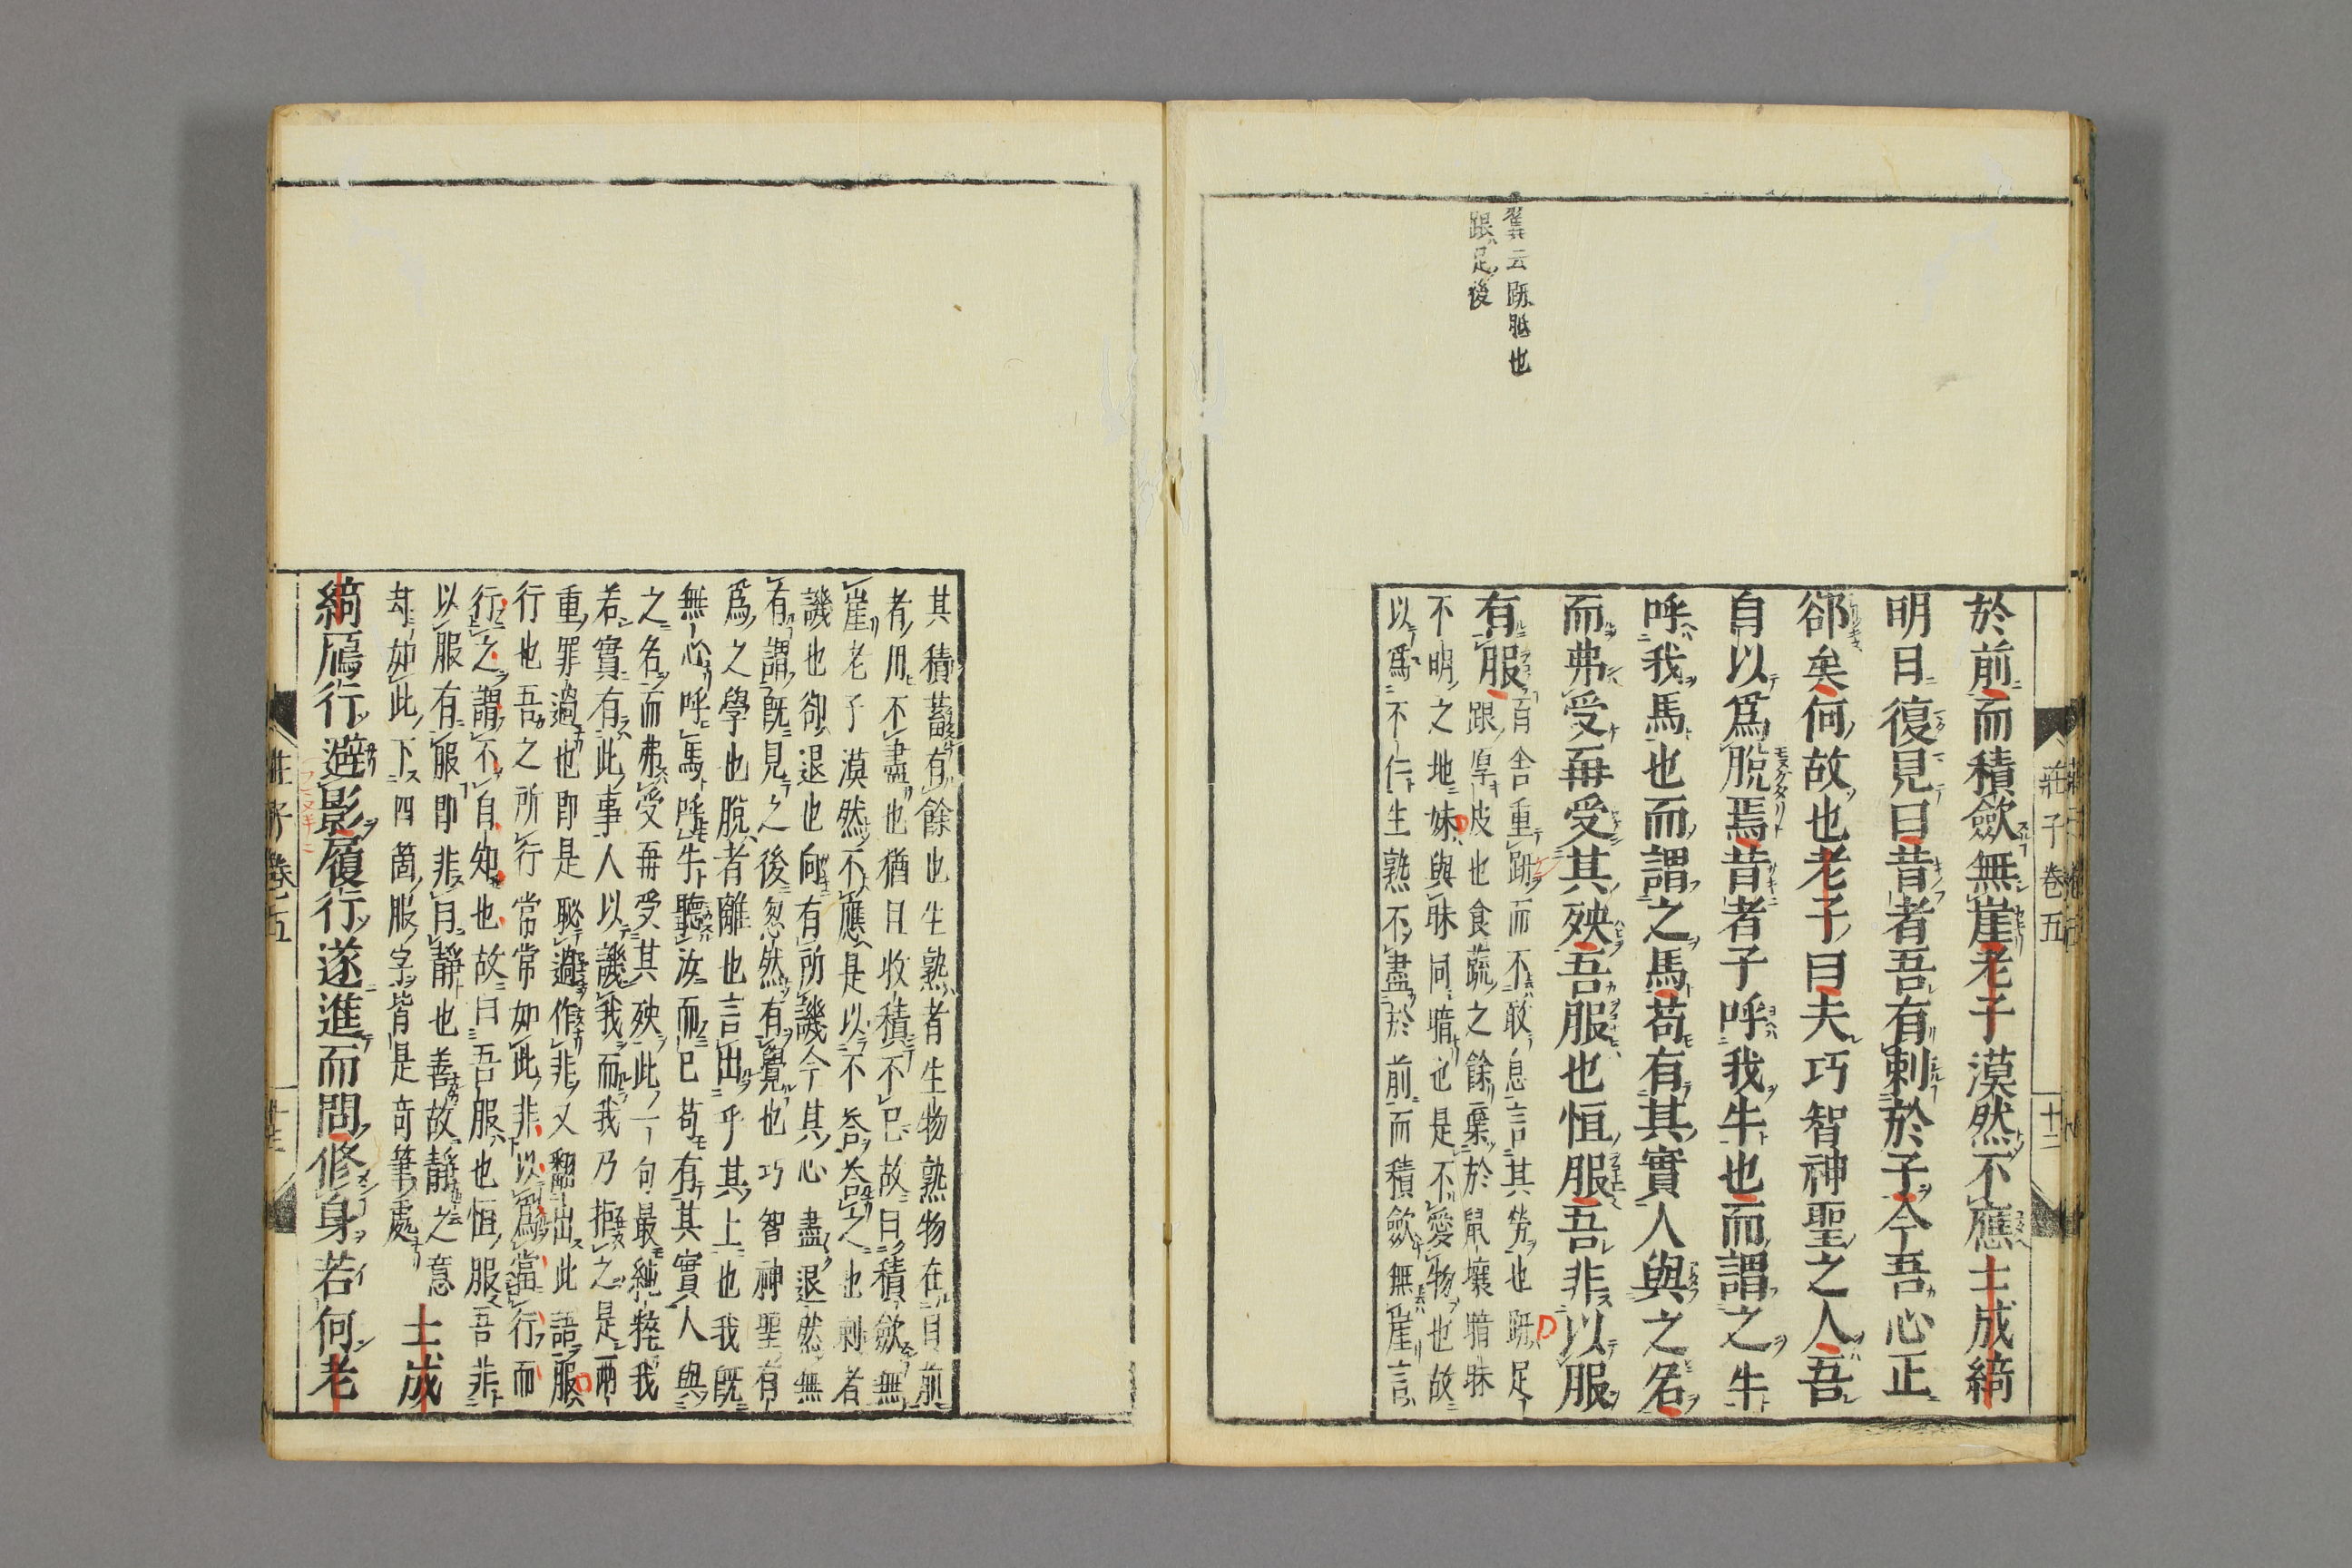 於前而積歛無崖老子漠然不應士成綺
明日復見曰昔者吾有刺於子今吾心正
郤矣何故也老子曰夫巧智神聖之人吾
自以爲脫焉昔者子呼我牛也而謂之牛
呼我馬也而謂之馬苟有其實人與之名
而弗受再受其殃吾服也恒服吾非以服
有服
百舍重趼而不敢息言其勞也趼足
跟厚皮也食蔬之餘棄於鼠壤暗昧
不明之地妹與昧同暗也是不愛物也故
以爲不仁生熟不盡於前而積歛無崖言
云趼胝也
跟足後
莊子卷五
十二
其積蓄有餘也生熟者生物熟物在目前
者用不盡也猶曰收積不已故曰積歛無
崖老子漠然不應是以不答答之也刺者
譏也郤退也向有所譏今其心盡退然無
有謂既見之後忽然有覺也巧智神聖有
爲之學也脫者離也言出乎其上也我既
無心呼馬呼牛聽汝而已苟有其實人與
之名而弗受再受其殃此一句最純粹我
若實有此事人以譏我而我乃拒之是兩
重罪過也即是恥過作非又翻出此語服
行也吾之所行常常如此非以爲當行而
行之謂不自知也故曰吾服也恒服吾非
以服有服即非自靜也善故靜之意
却如此下四箇服字皆是奇筆處
士成
綺鴈行避影履行遂進而問修身若何老
莊子卷五
十三